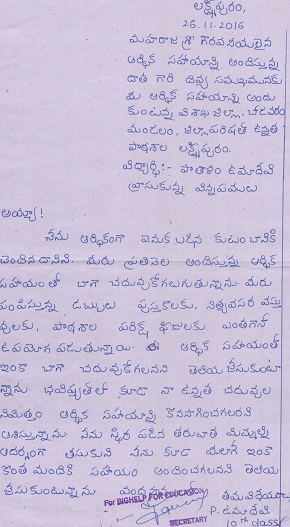 లక్ష్మీపురం,
26.11.2016
మహారాజ శ్రీ గౌరవనీయులైన
ఆర్థిక సహాయాన్ని అందిస్తున్న
దాత గారి దివ్య సముఖమునకు
మీ ఆర్థిక సహాయాన్ని అందు
కుంటున్న విశాఖ జిల్లా, చీడవరం
మండలం, జిల్లాపరిషత్ ఉన్నత
పాఠశాల లక్ష్మీపురం.
విద్యార్థి:- పాతాళం ఉమాదేవి
వ్రాసుకున్న విన్నపములు
అయ్యా!
నేను ఆర్థికంగా వెనుకబడిన కుటుంబానికి
చెందిన దానిని. మీరు ప్రతినెల అందిస్తున్న ఆర్థిక
సహాయంతో బాగా చదువుకోగలుగుతున్నాను. మీరు
పంపిస్తున్న డబ్బులు పుస్తకాలకు, నిత్యవసర వస్తు
వులకు, పాఠశాల పరీక్ష ఫీజులకు ఎంతగానో
ఉపయోగ పడుతున్నాయి. ఈ ఆర్థిక సహాయంతో
ఇంకా బాగా చదువుకోగలనని తెలియ జేసుకుంటు
న్నాను. భవిష్యత్తులో కూడా నా ఉన్నత చదువుల
నిమిత్తం ఆర్థిక సహాయాన్ని కొనసాగించగలరని
ఆశిస్తున్నాను. నేను స్థిర పడిన తరువాత మిమ్మల్ని
ఆదర్శంగా తీసుకుని నేను కూడా మీలాగే ఇంకా
కొంత మందికి సహాయం అందించగలనని తెలియ
జేసుకుంటున్నాను
For BIGHELP FOR EDUCATION
తమవిధేయురాలు
P. ఉమాదేవి
SECRETARY
class